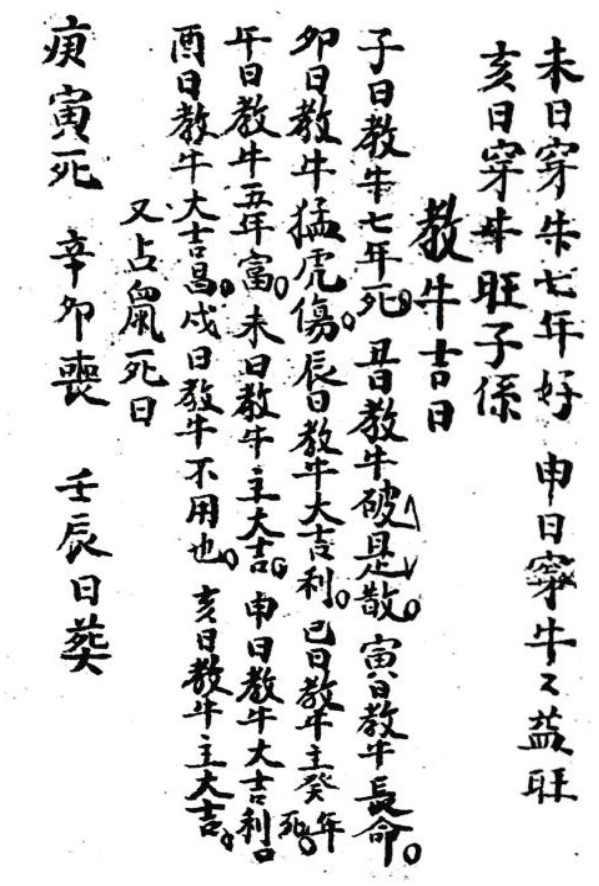 未日穿牛七年好 申日穿牛々益旺
亥日穿牛旺子孫
教牛吉日
子日教牛七年死。丑日教牛破是散。寅日教牛長命。
卯日教牛猛虎傷。辰日教牛大吉利。巳日教牛主癸年死。
午日教牛五年富。未日教牛主大吉。申日教牛大吉利。
酉日教牛大吉昌。戌日教牛不用也。亥日教牛主大吉。
又占鼠死日
庚寅死 辛卯喪 壬辰日葬